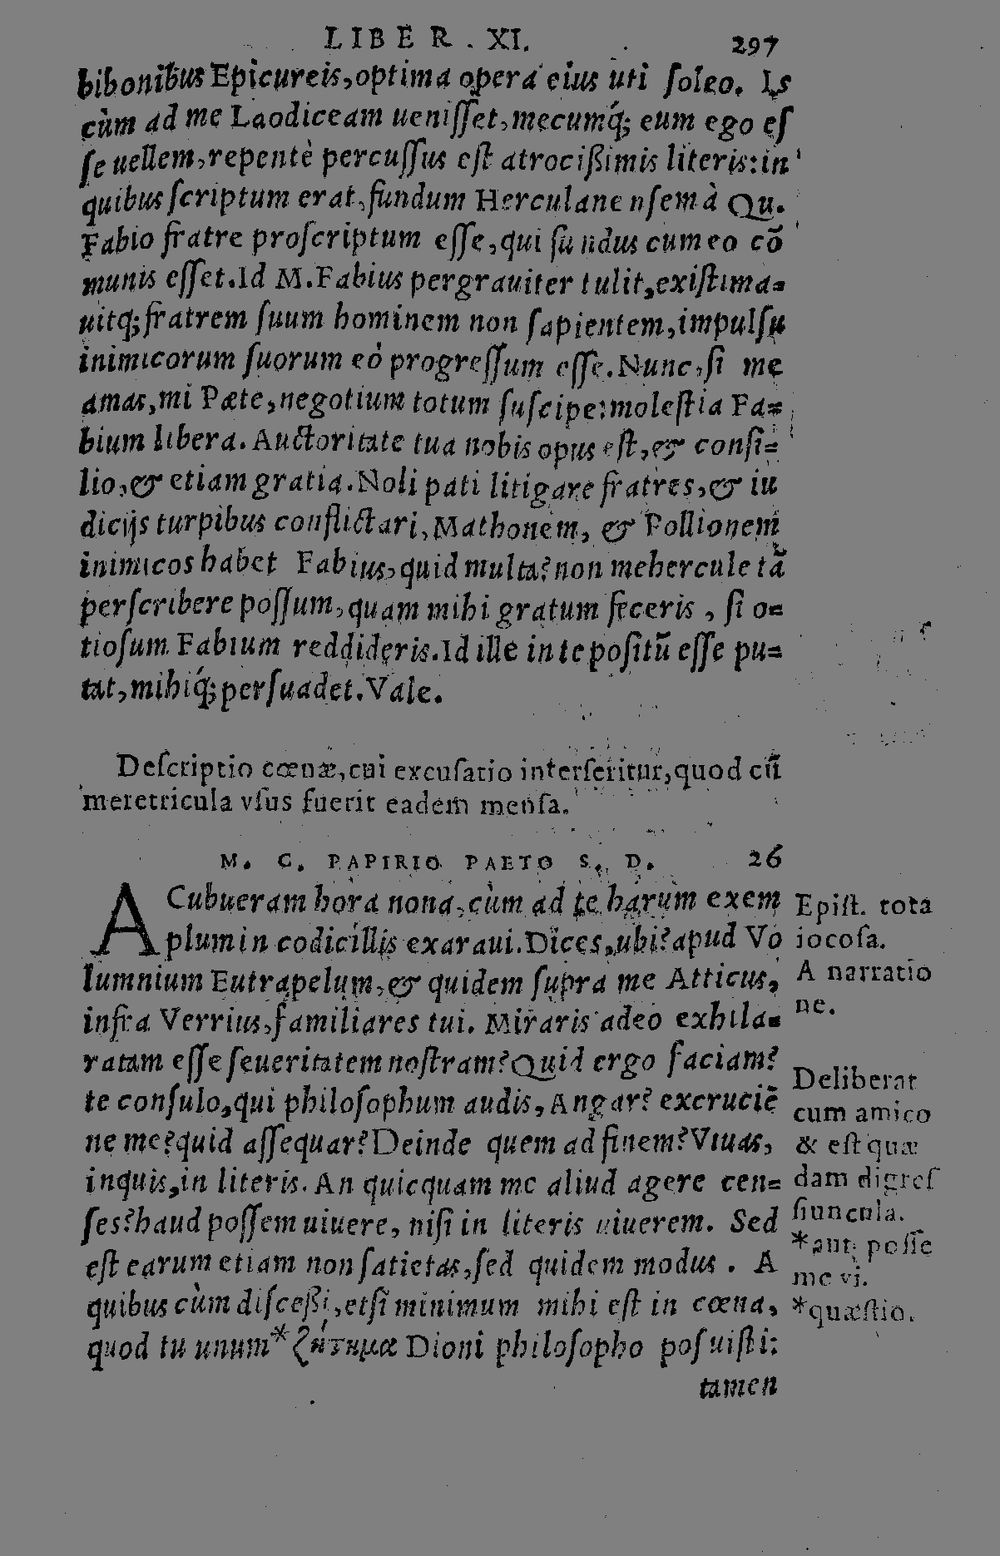 LIBER . XI. 297
bibonibus Epicureis, optima opera eius uti ſoleo. Is
cùm ad me Laodiceam ueniſſet, mecumq́; eum ego eſ
ſe uellem, repentè percuſſus eſt atrocißimis literis: in
quibus ſcriptum erat, fundum Herculanenſem à Qu.
Fabio fratre proſcriptum eſſe, qui fundus cum eo cõ
munis eſſet. Id M. Fabius pergrauiter tulit, exiſtima=
uitq́; fratrem ſuum hominem non ſapientem, impulſu
inimicorum ſuorum eò progreſſum eſſe. Nunc, ſi me
amas, mi Pæte, negotium totum ſuſcipe: moleſtia Fa=
bium libera. Auctoritate tua nobis opus eſt, & conſi=
lio, & etiam gratia. Noli pati litigare fratres, & iu
dicijs turpibus conflictari, Mathonem, & Pollionem
inimicos habet Fabius, quid multa? non mehercule tã
perſcribere poſſum, quam mihi gratum feceris, ſi o=
tioſum Fabium reddideris. Id ille in te poſitũ eſſe pu=
tat, mihiq́; perſuadet. Vale.
Deſcriptio cœnæ, cui excuſatio interſeritur, quod cũ
meretricula vſus fuerit eadem menſa.
M. C. PAPIRIO PAETO S. D. 26
ACubueram hora nona, cùm ad te harum exem
plum in codicillis exaraui. Dices, ubi? apud Vo
lumnium Eutrapelum, & quidem ſupra me Atticus,
infra Verrius, familiares tui. Miraris adeo exhila=
ratam eſſe ſeueritatem noſtram? Quid ergo faciam?
te conſulo, qui philoſophum audis, Angar? excruciẽ
ne me? quid aſſequar? Deinde quem ad finem? Viuas,
inquis, in literis. An quicquam me aliud agere cen=
ſes? haud poſſem uiuere, niſi in literis uiuerem. Sed
eſt earum etiam non ſatietas, ſed quidem modus . A
quibus cùm diſceßi, etſi minimum mihi eſt in cœna,
quod tu unum* ζήτημα Dioni philoſopho poſuiſti:
tamen
Epiſt. tota
iocoſa.
A narratio
ne.
Deliberat
cum amico
& eſt quæ
dam digreſ
ſiuncula.
*aut poſſe
me vi.
*quæſtio.